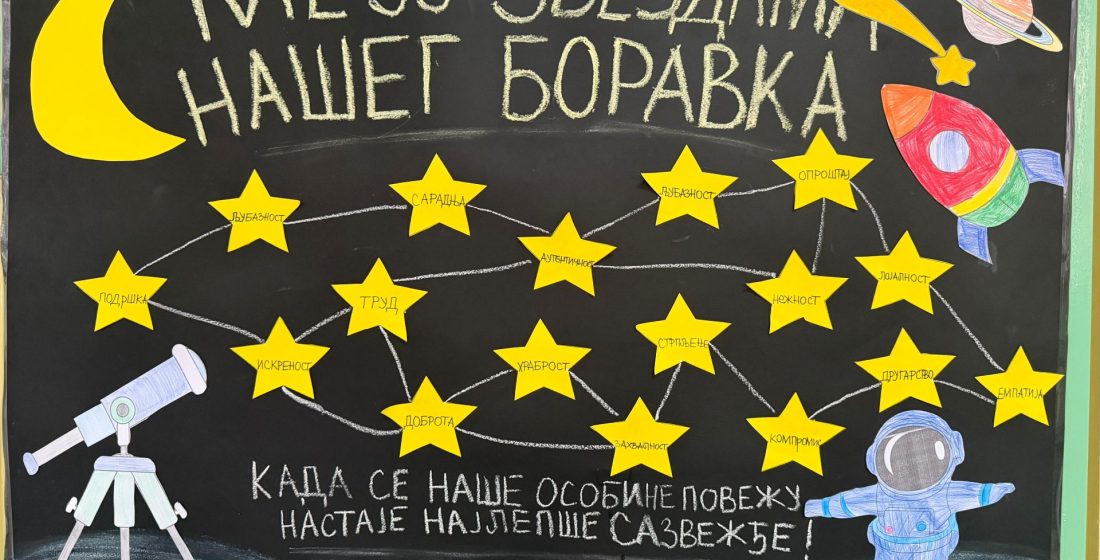 ЗВЕЗДАМА
НАШЕГ БОРАВКА
ОПРОШТАЈ
ЉУБАЗНОСТ
САРАДЊА
ЉУБАЗНОСТ
АУТЕНТИЧНОСТ
ЛОЈАЛНОСТ
ПОДРШКА
ТРУД
НЕЖНОСТ
СТРПЉЕЊЕ
ИСКРЕНОСТ
ХРАБРОСТ
ДРУГАРСТВО
ЕМПАТИЈА
ДОБРОТА
ЗАХВАЛНОСТ
КОМПРОМИС
КАДА СЕ НАШЕ ОСОБИНЕ ПОВЕЖУ
НАСТАЈЕ НАЈЛЕПШЕ САЗВЕЖЂЕ!